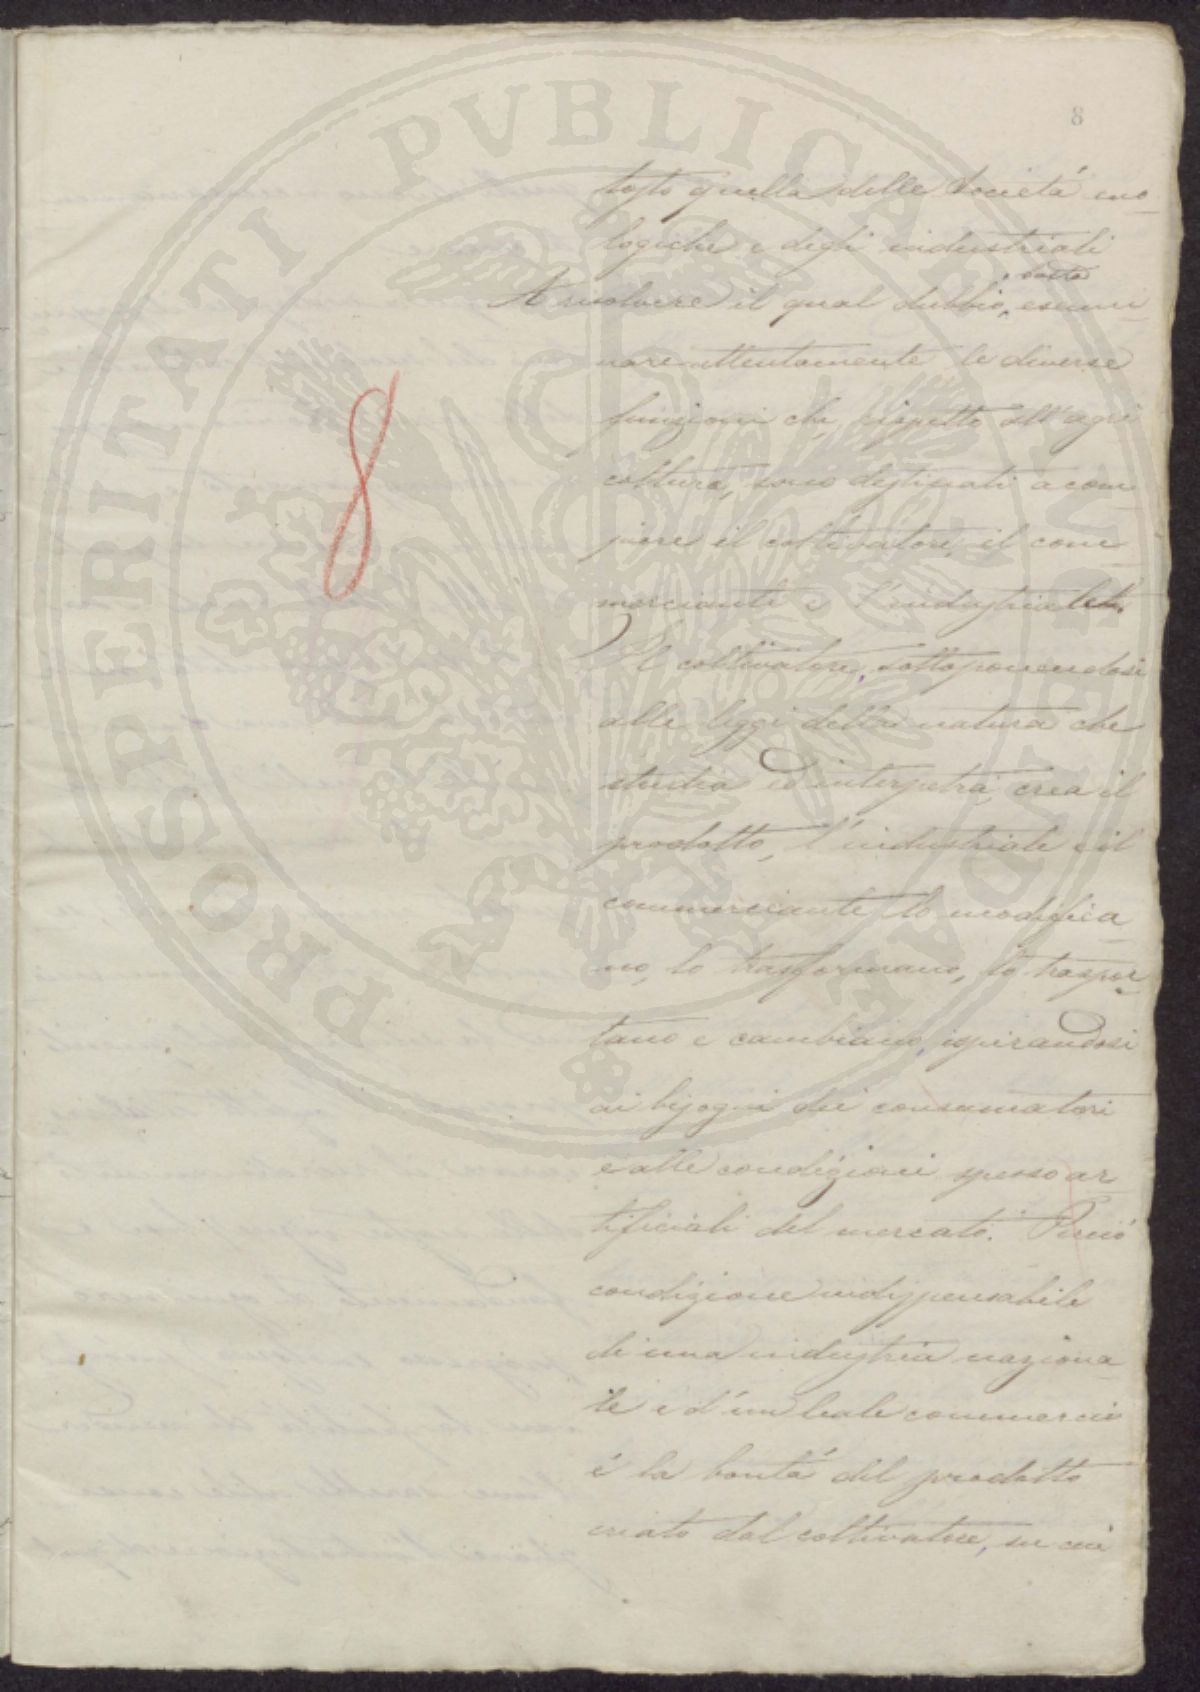 8
tosto quella delle Società eno
logiche e degli industriali
A risolvere il qual dubbio, basta esami
nare attentamente le diverse
funzioni che, rispetto all'agri
coltura, sono destinati a com
piere il coltivatore, il com
merciante e l'industriale.
8
Il coltivatore, sottoponendosi
alle leggi della natura che
studia ed interpetra, crea il
prodotto, l'industriale e il
commerciante, lo modifica
no, lo trasformano, lo traspor
tano e cambiano, ispirandosi
ai bisogni dei consumatori
e alle condizioni spesso ar
tificiali del mercato. Perciò
condizione indispensabile
di una industria naziona
le e d'un leale commercio
è la bontà del prodotto
creato dal coltivatore, su cui
PROSPERITATI PVBLICAE AVGENDAE